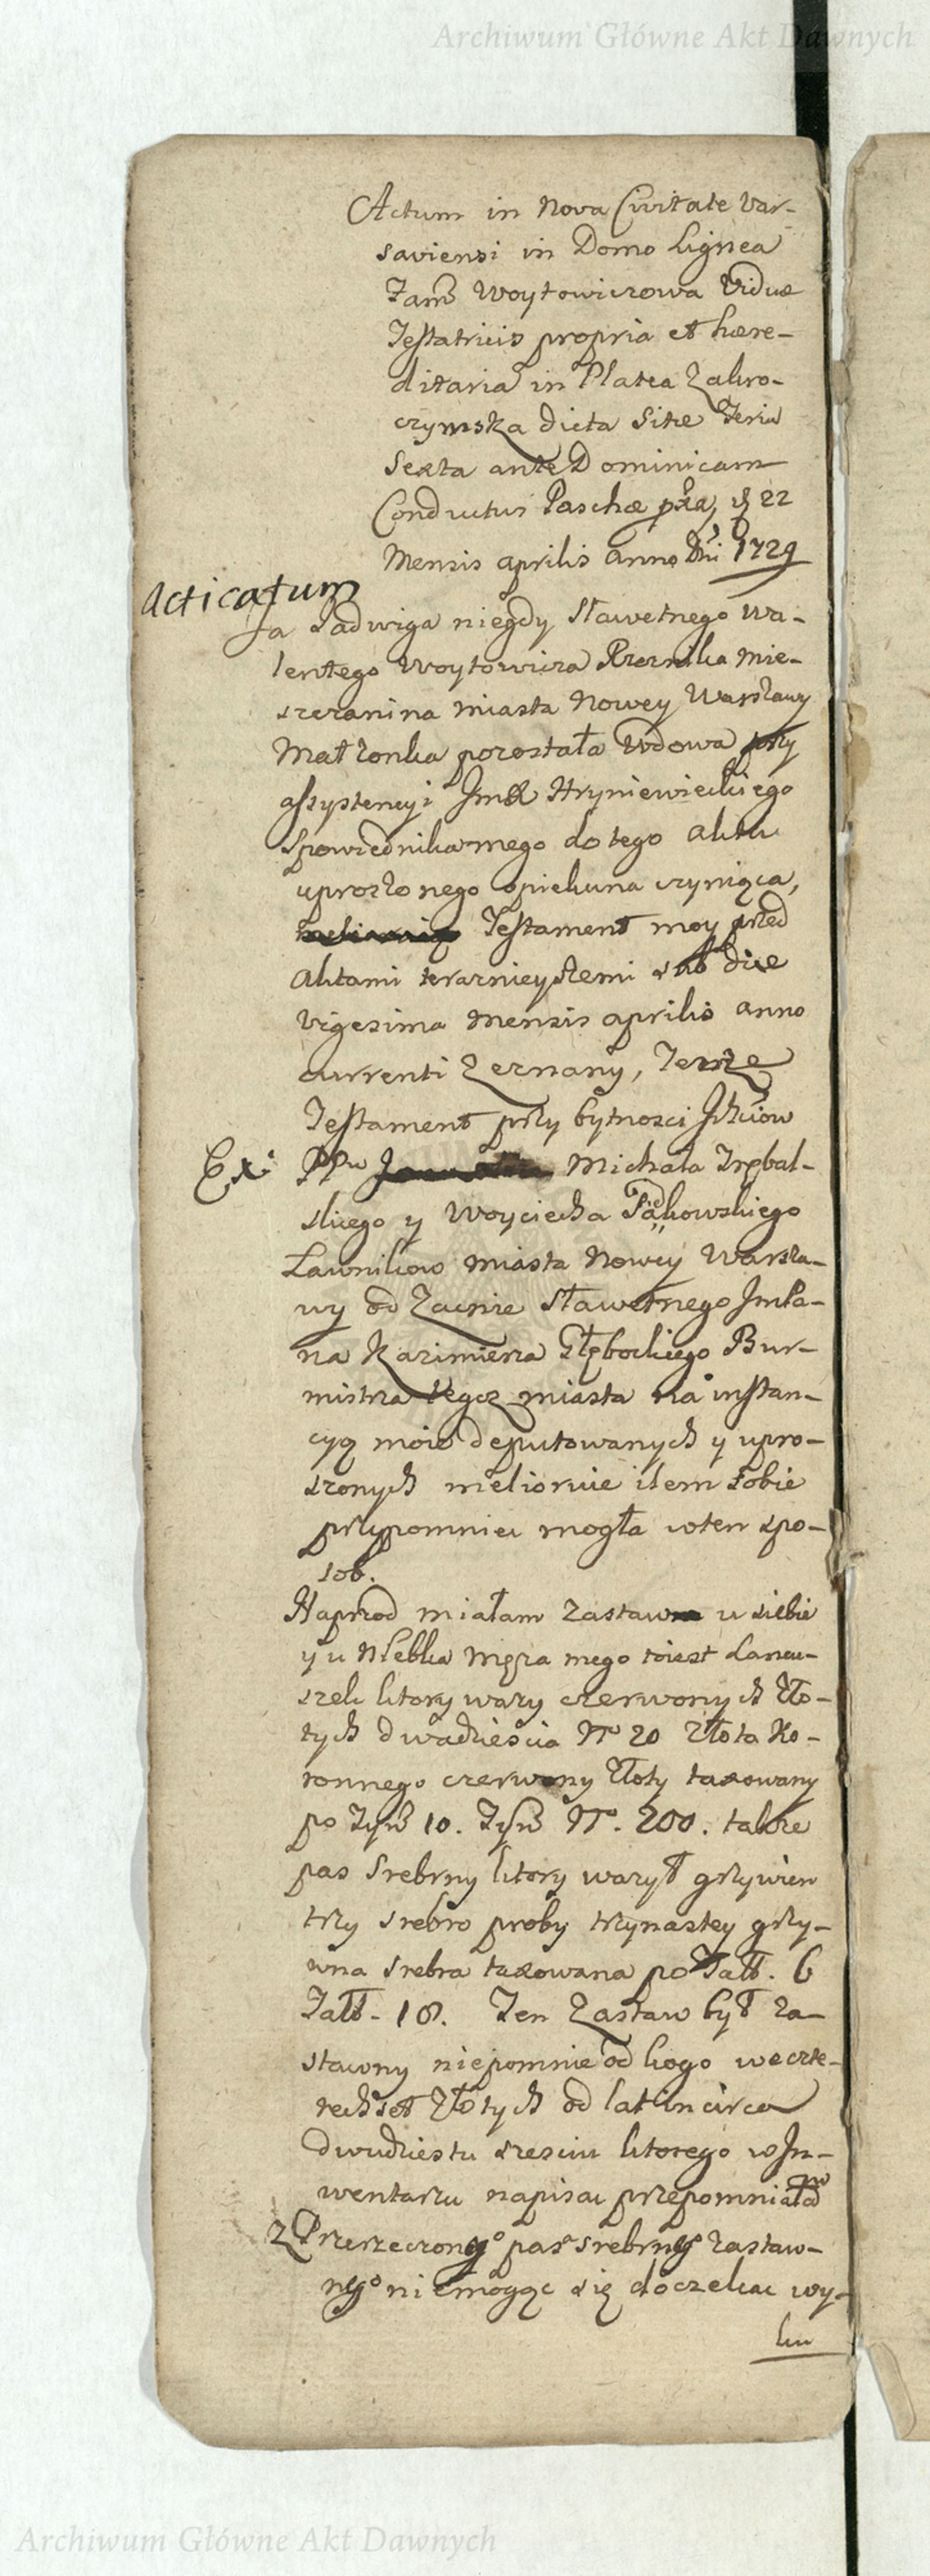 Archiwum Główne Akt Dawnych
Actum in Nova Civitate Var-
saviensi in Domo Lignea
Fam Woytowiczowa Viduæ
Testatricis propria et hære-
ditaria in Platea Zakro-
czymska dicta Sitæ Feria
Sexta ante Dominicam
Conductus Paschæ 22
Mensis aprilis anno Dni 1729
Acticatum
Ja Jadwiga niegdy Sławetnego Wa-
lentego Woytowicza Rzeznika Mie-
szczanina miasta Nowey Warszawy
Małzonka pozostała Wdowa przy
assystencyi Hryniewieckiego
Spowiednika mego do tego Aktu
uproszonego opiekuna czyniąca,
Testament moy przed
Aktami teraznieyszemi sub die
Vigesima Mensis aprilis anno
currenti Zeznany, Tenze
Testament przy bytnosci
Ex: Michała Trębal-
skiego y Woyciecha
Ławnikow Miasta Nowey Warsza-
wy od Zacnie Sławetnego ImPa-
na Kazimierza Głębockiego Bur-
mistrza tegoz miasta na instan-
cyą moię deputowanych y upro-
szonych melioruie ilem sobie
przypomniec mogła wten spo-
sob.
Naprzod miałam Zastaw u siebie
y u Niebka Męza mego toiest Lancu-
szek ktory wazy czerwonych Zło-
tych dwadziescia No 20 Złota Ko-
ronnego czerwony Złoty taxowany
po Tynf 10. Tynf No. 200. takze
pas Srebrny ktory wazył grzywien
trzy srebro proby trzynastey grzy-
wna srebra taxowana po Tall. 6
Tall. 18. Ten Zastaw był Za-
stawny niepomnie od kogo weczte-
rechset Złotych od lat in circa
Dwudziestu szesciu ktorego w In-
wentarzu napisac przepomniałam
2 Przerzeczongo pasa srebrngo Zastaw-
ngo niemogąc się doczekac wy-
ku
Archiwum Główne Akt Dawnych